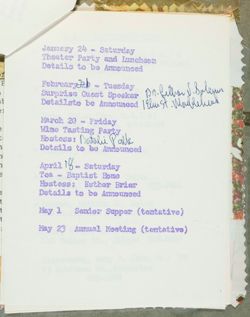 January 24 - Saturday
Theater Party and Luncheon
Details to be Announced
February - Tuesday
Surprise Guest Speaker Dr.
Details to be Announced
March 20 - Friday
Wine Tasting Party
Hostess: Natalie
Details to be Announced
April 18 - Saturday
Tea - Baptist Home
Hostess: Esther Brier
Details to be Announced
May 1 Senior Supper (tentative)
May 23 Annual Meeting (tentative)